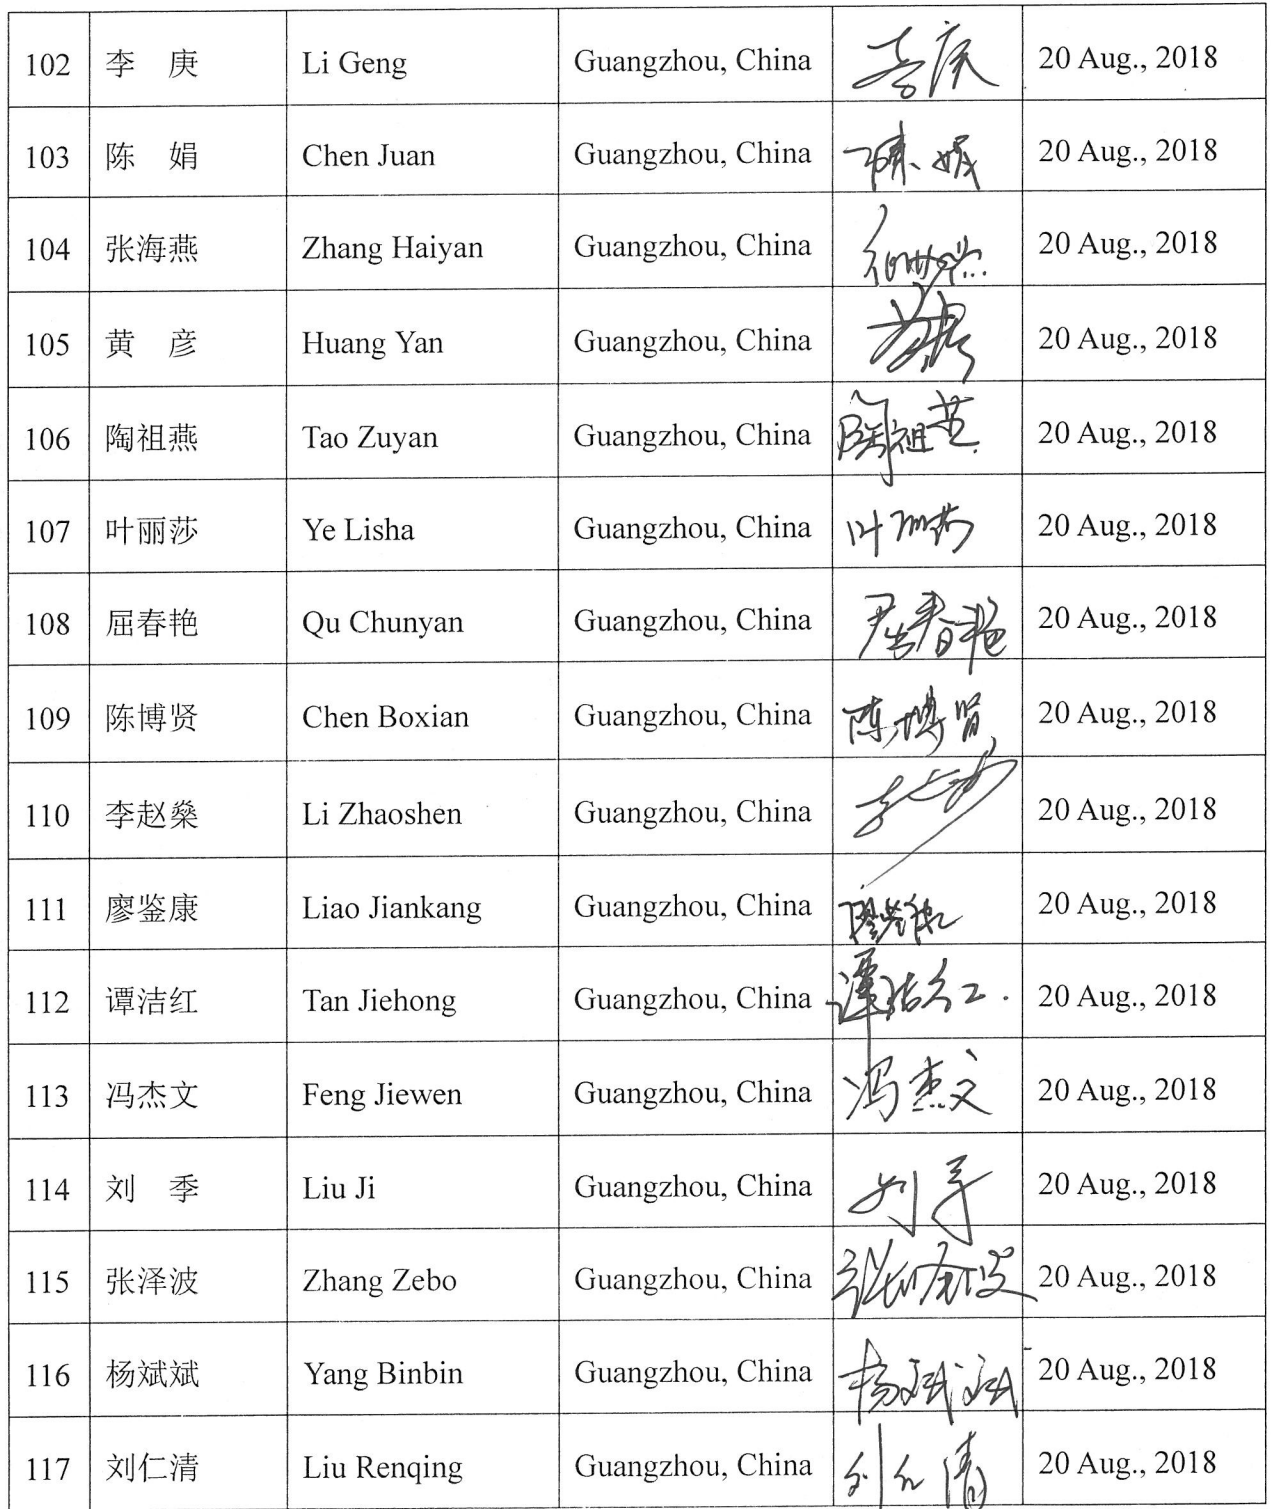 102 李 庚 Li Geng Guangzhou, China 李庚 20 Aug., 2018
103 陈 娟 Chen Juan Guangzhou, China 陈娟 20 Aug., 2018
104 张海燕 Zhang Haiyan Guangzhou, China 20 Aug., 2018
105 黄 彦 Huang Yan Guangzhou, China 20 Aug., 2018
106 陶祖燕 Tao Zuyan Guangzhou, China 陶祖燕 20 Aug., 2018
107 叶丽莎 Ye Lisha Guangzhou, China 叶丽莎 20 Aug., 2018
108 屈春艳 Qu Chunyan Guangzhou, China 屈春艳 20 Aug., 2018
109 陈博贤 Chen Boxian Guangzhou, China 陈博贤 20 Aug., 2018
110 李赵燊 Li Zhaoshen Guangzhou, China 20 Aug., 2018
111 廖鉴康 Liao Jiankang Guangzhou, China 20 Aug., 2018
112 谭洁红 Tan Jiehong Guangzhou, China 谭洁红 20 Aug., 2018
113 冯杰文 Feng Jiewen Guangzhou, China 冯杰文 20 Aug., 2018
114 刘 季 Liu Ji Guangzhou, China 刘季 20 Aug., 2018
115 张泽波 Zhang Zebo Guangzhou, China 20 Aug., 2018
116 杨斌斌 Yang Binbin Guangzhou, China 杨斌斌 20 Aug., 2018
117 刘仁清 Liu Renqing Guangzhou, China 刘仁清 20 Aug., 2018